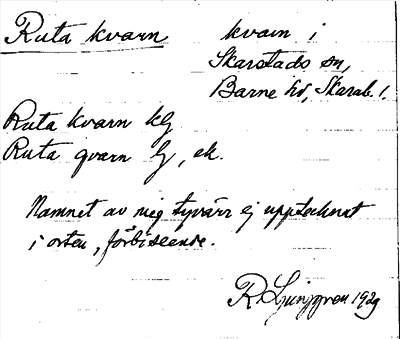 Ruta kvarn kvarn i
Skarstads sn,
Barne hd, Skarab. l.
Ruta kvarn kg
Ruta qvarn lg, ek.
Namnet av mig tyvärr ej upptecknat
i orten, förbiseende.
R. Ljunggren 1929